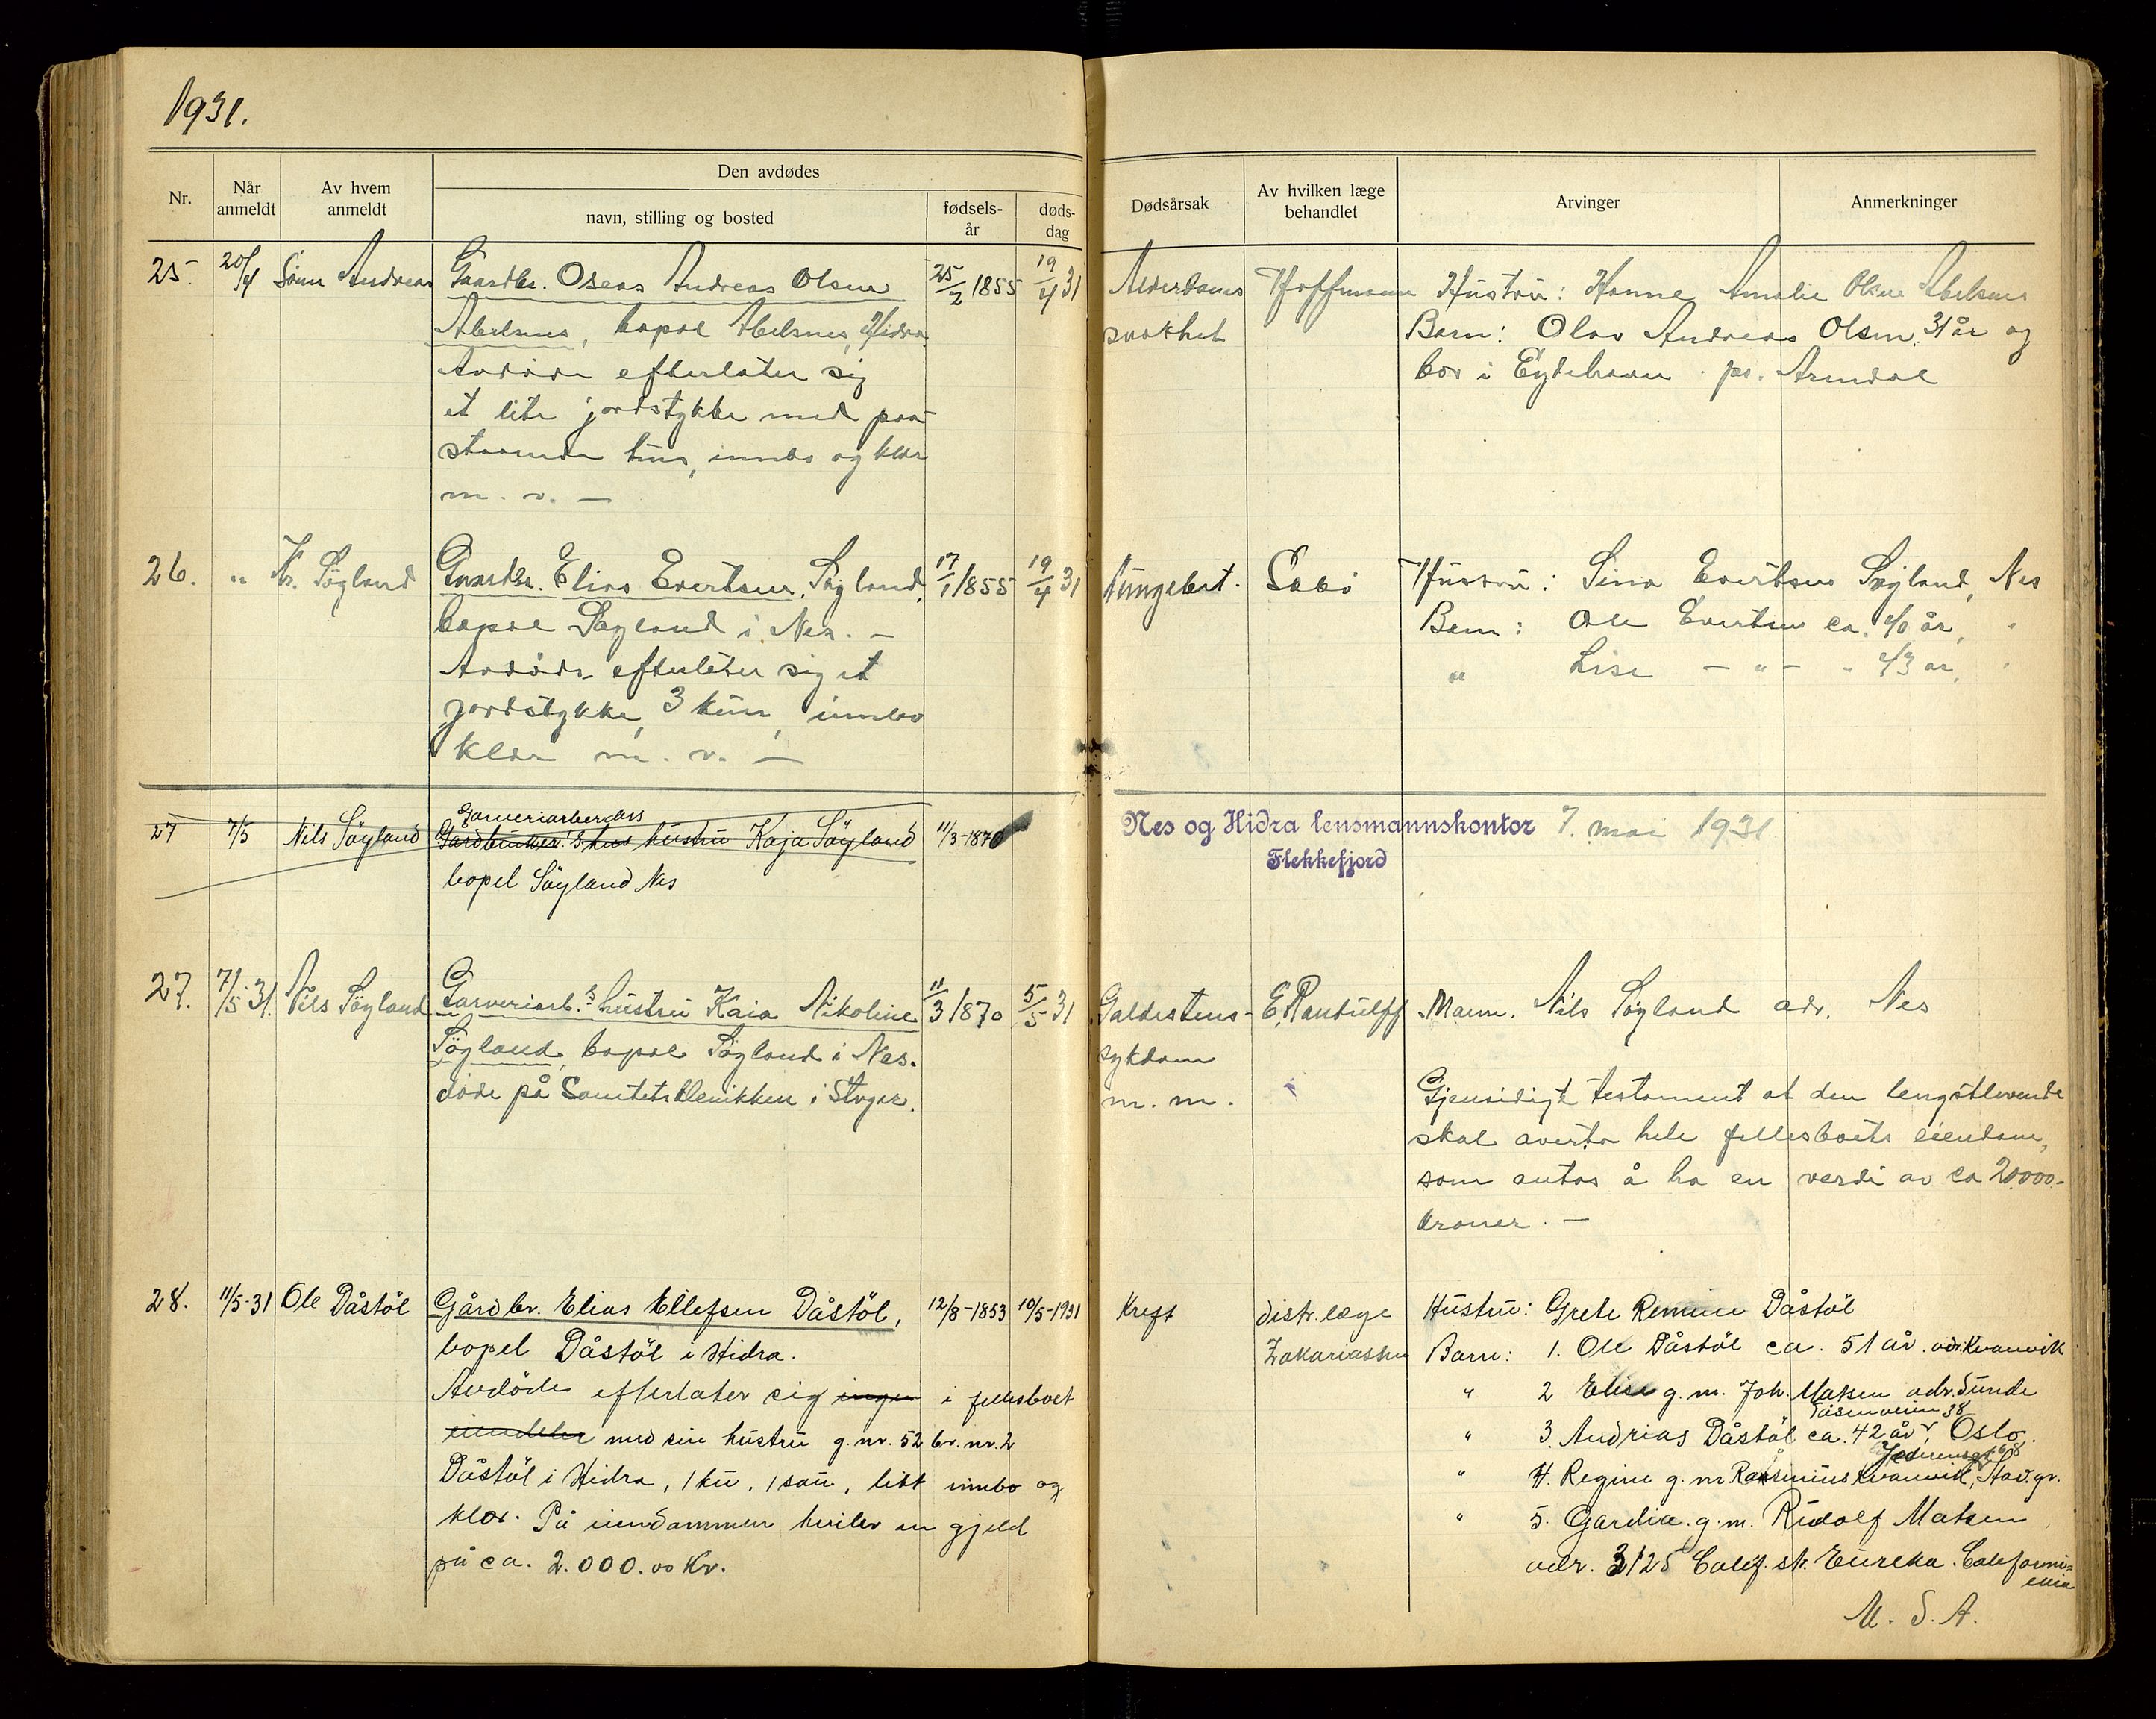 1931.
Nr.
Når anmeldt
Av hvem anmeldt
Den avdødes
navn, stilling og bosted
fødsels-år
døds-dag
Dødsårsak
Av hvilken læge behandlet
Arvinger
Anmerkninger
25. 20/4 Sønn Andreas Gaardbr. Oseas Andreas Olsen 25/2 1855 19/4 31 Alderdoms Hoffmann Hustru: Hanne Amalie Olsen Abelsnes
Abelsnes, bopæl Abelsnes, Hidra. svakhet Barn: Olav Andreas Olsen, 31 år og
Avdøde efterlater sig bor i Eydehavn pr. Arendal
et lite jordstykke med paa-
staaende hus, innbo og klær
m. v. —
26. " Kr. Søyland Gaardbr. Elias Evertsen, Søyland, 17/1 1855 19/4 31 Lungebet. Sæbø Hustru: Sina Evertsen Søyland, Nes
bopæl Søyland i Nes. — Barn: Ole Evertsen ca. 40 år, "
Avdøde efterlater sig et " Lise — " — " 43 år, "
jordstykke, 3 kuer, innbo
klær m. v. —
27 7/5 Nils Søyland Garveriarbeiders
Gårdbruker's hus hustru Kaja Søyland 11/3-1870 Nes og Hidra lensmannskontor 7. mai 1931
Flekkefjord
bopel Søyland Nes
27. 7/5-31. Nils Søyland Garveriarb.s hustru Kaia Nikoline 11/3 1870 5/5 31 Galdestens- E. Randulff Mann. Nils Søyland adr. Nes
Søyland, bopæl Søyland i Nes. sykdom
døde på Sanitetsklenikken i Stvgr. m. m. Gjensidigt testament at den lengstlevende
skal averta hele fellesboets eiendom,
som antas å ha en verdi av ca 20000.-
kroner. —
28. 11/5-31 Ole Dåstöl Gårdbr. Elias Ellefsen Dåstöl, 12/8-1853 10/5-1931 Kreft distr.læge Hustru: Grete Dåstöl
bopel Dåstöl i Hidra. Zakariassen Barn: 1. Ole Dåstöl ca. 51 år. adr. Kvanvik
Avdöde efterlater sig ingen i fellesboet " 2 Elise g. m. Joh. Matsen adr. Sunde
eiendeler med sin hustru g.nr. 52 br.nr. 2 " 3. Andrias Dåstöl ca. 42 år, Tåsenveien 38 Oslo.
Dåstöl i Hidra, 1 ku, 1 sau, litt innbo og " 4. Regine g. m Rasmus Kvanvik, Stav.gr.
klær. På eiendommen hviler en gjeld " 5. Gardia. g. m. Rudolf Matsen
på ca. 2.000.00 Kr. adr. 3125 Calif. str. Eureka. California
U. S. A.